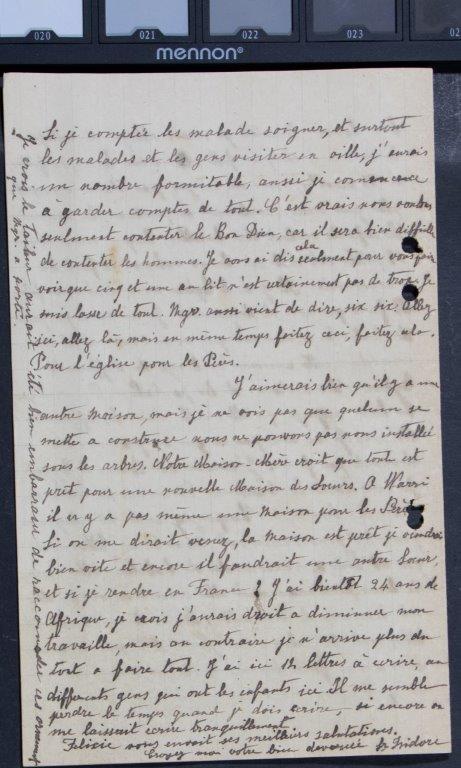 020 021 022 023
mennon®
Si je comptée les malade soigner, et surtout
les malades et les gens visiter en ville, j'aurais
un nombre formitable, aussi je commence
à garder comptes de tout. C'est vrais nous voulons
seulment contenter le Bon Dieu, car il sera bien difficile
de contenter les hommes. Je vous ai dis cela seulment pour vous faire
voir que cinq et une au lit n'est certainement pas de trop. Je
suis lasse de tout. Mgr. aussi vient de dire, six six. Allez
ici, allez là, mais en même temps faitez ceci, faitez cela.
Pour l'église pour les Pères.
J'aimerais bien qu'il y a une
autre maison, mais je ne vois pas que quelcun se
mette a construire nous ne pouvons pas nous installeé
sous les arbres. Notre Maison-Mère croit que tout est
prêt pour une nouvelle Maison des Soeurs. A Warri
il er y a pas même une maison pour les Pères
Si on me dirait venez, la maison est prêt je viendrai
bien vite et encore il faudrait une autre Soeur
et si je rendre en France ? J'ai bientôt 24 ans de
Afrique, je crois j'aurais droit a diminuer mon
travaille, mais au contraire je n'arrive plus du
tout a faire tout. J'ai ici 12 lettres à écrire, au
differents gens qui ont les enfants ici Il me semble
perdre le temps quand je dois ecrire, si encore on
me laissait ecrire tranquillement.
Felicie vous envoit ses meilleurs salutations.
Croyez moi votre bien devouée Sr Isidore
Je crois le tailleur aurait été bien embarrasé de raccomoder ces ornements
que Mgr. a porté.